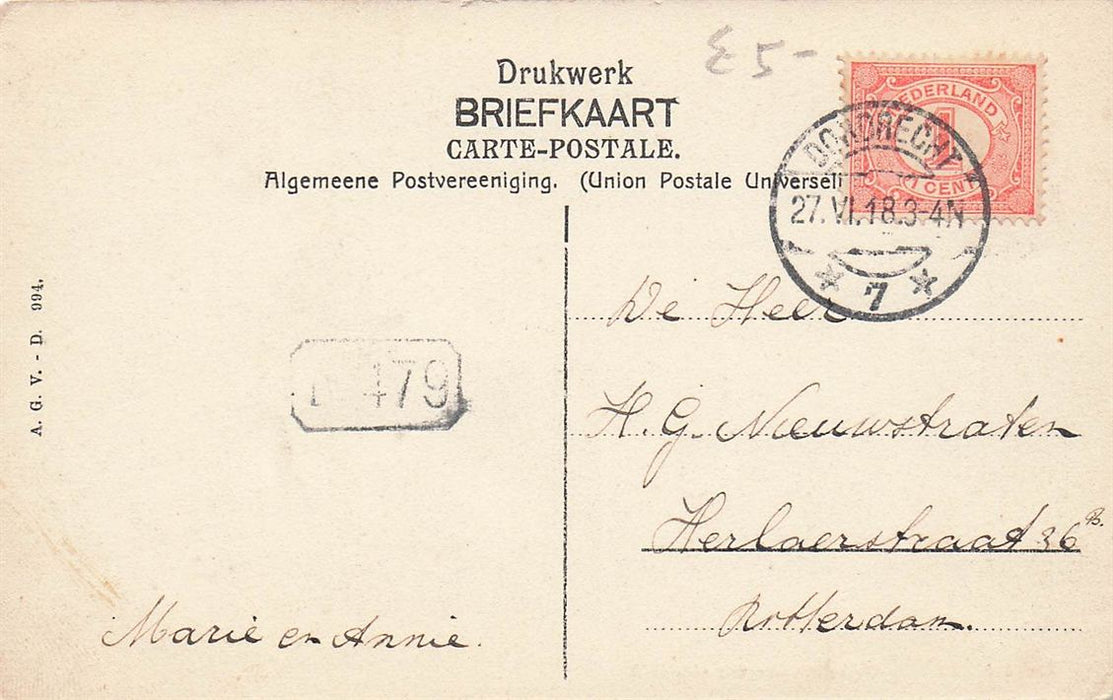 £5-
Drukwerk
BRIEFKAART
CARTE-POSTALE.
Algemeene Postvereeniging. (Union Postale Universell
NEDERLAND
1
1 CENT
DORDRECHT
27.VI.18.3-4N
7
A. G. V. - D. 994.
479
De Heer
H. G. Nieuwstraten
Herlaerstraat 36 B.
Rotterdam.
Marie en Annie.